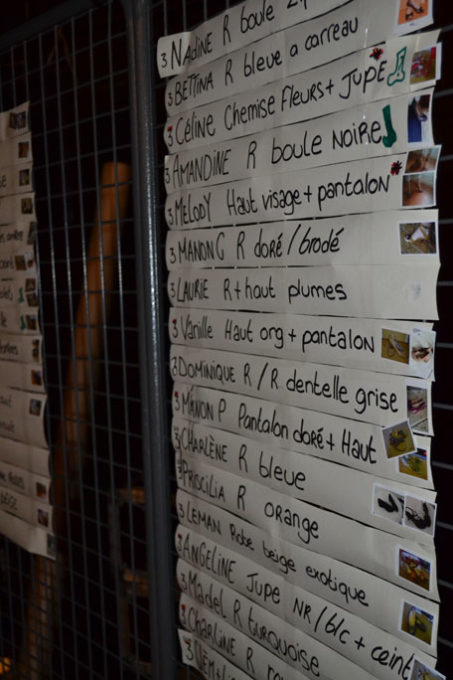 3 NADINE R boule
3 BETTINA R bleue a carreau
3 Céline Chemise Fleurs + JUPE 1
3 AMANDINE R boule NOIRE
3 MELODY Haut visage + pantalon
3 MANON G R doré / brodé
3 LAURIE R + haut plumes
3 Vanille Haut org + pantalon
3 DOMINIQUE R / R dentelle grise
3 MANON P Pantalon doré + Haut
3 CHARLÈNE R bleue
3 PRISCILIA R ORANGE
3 LEMAN Robe beige exotique
3 ANGELINE JUPE NR/blc + ceint
3 Madel R turquoise
3 Charline R
3